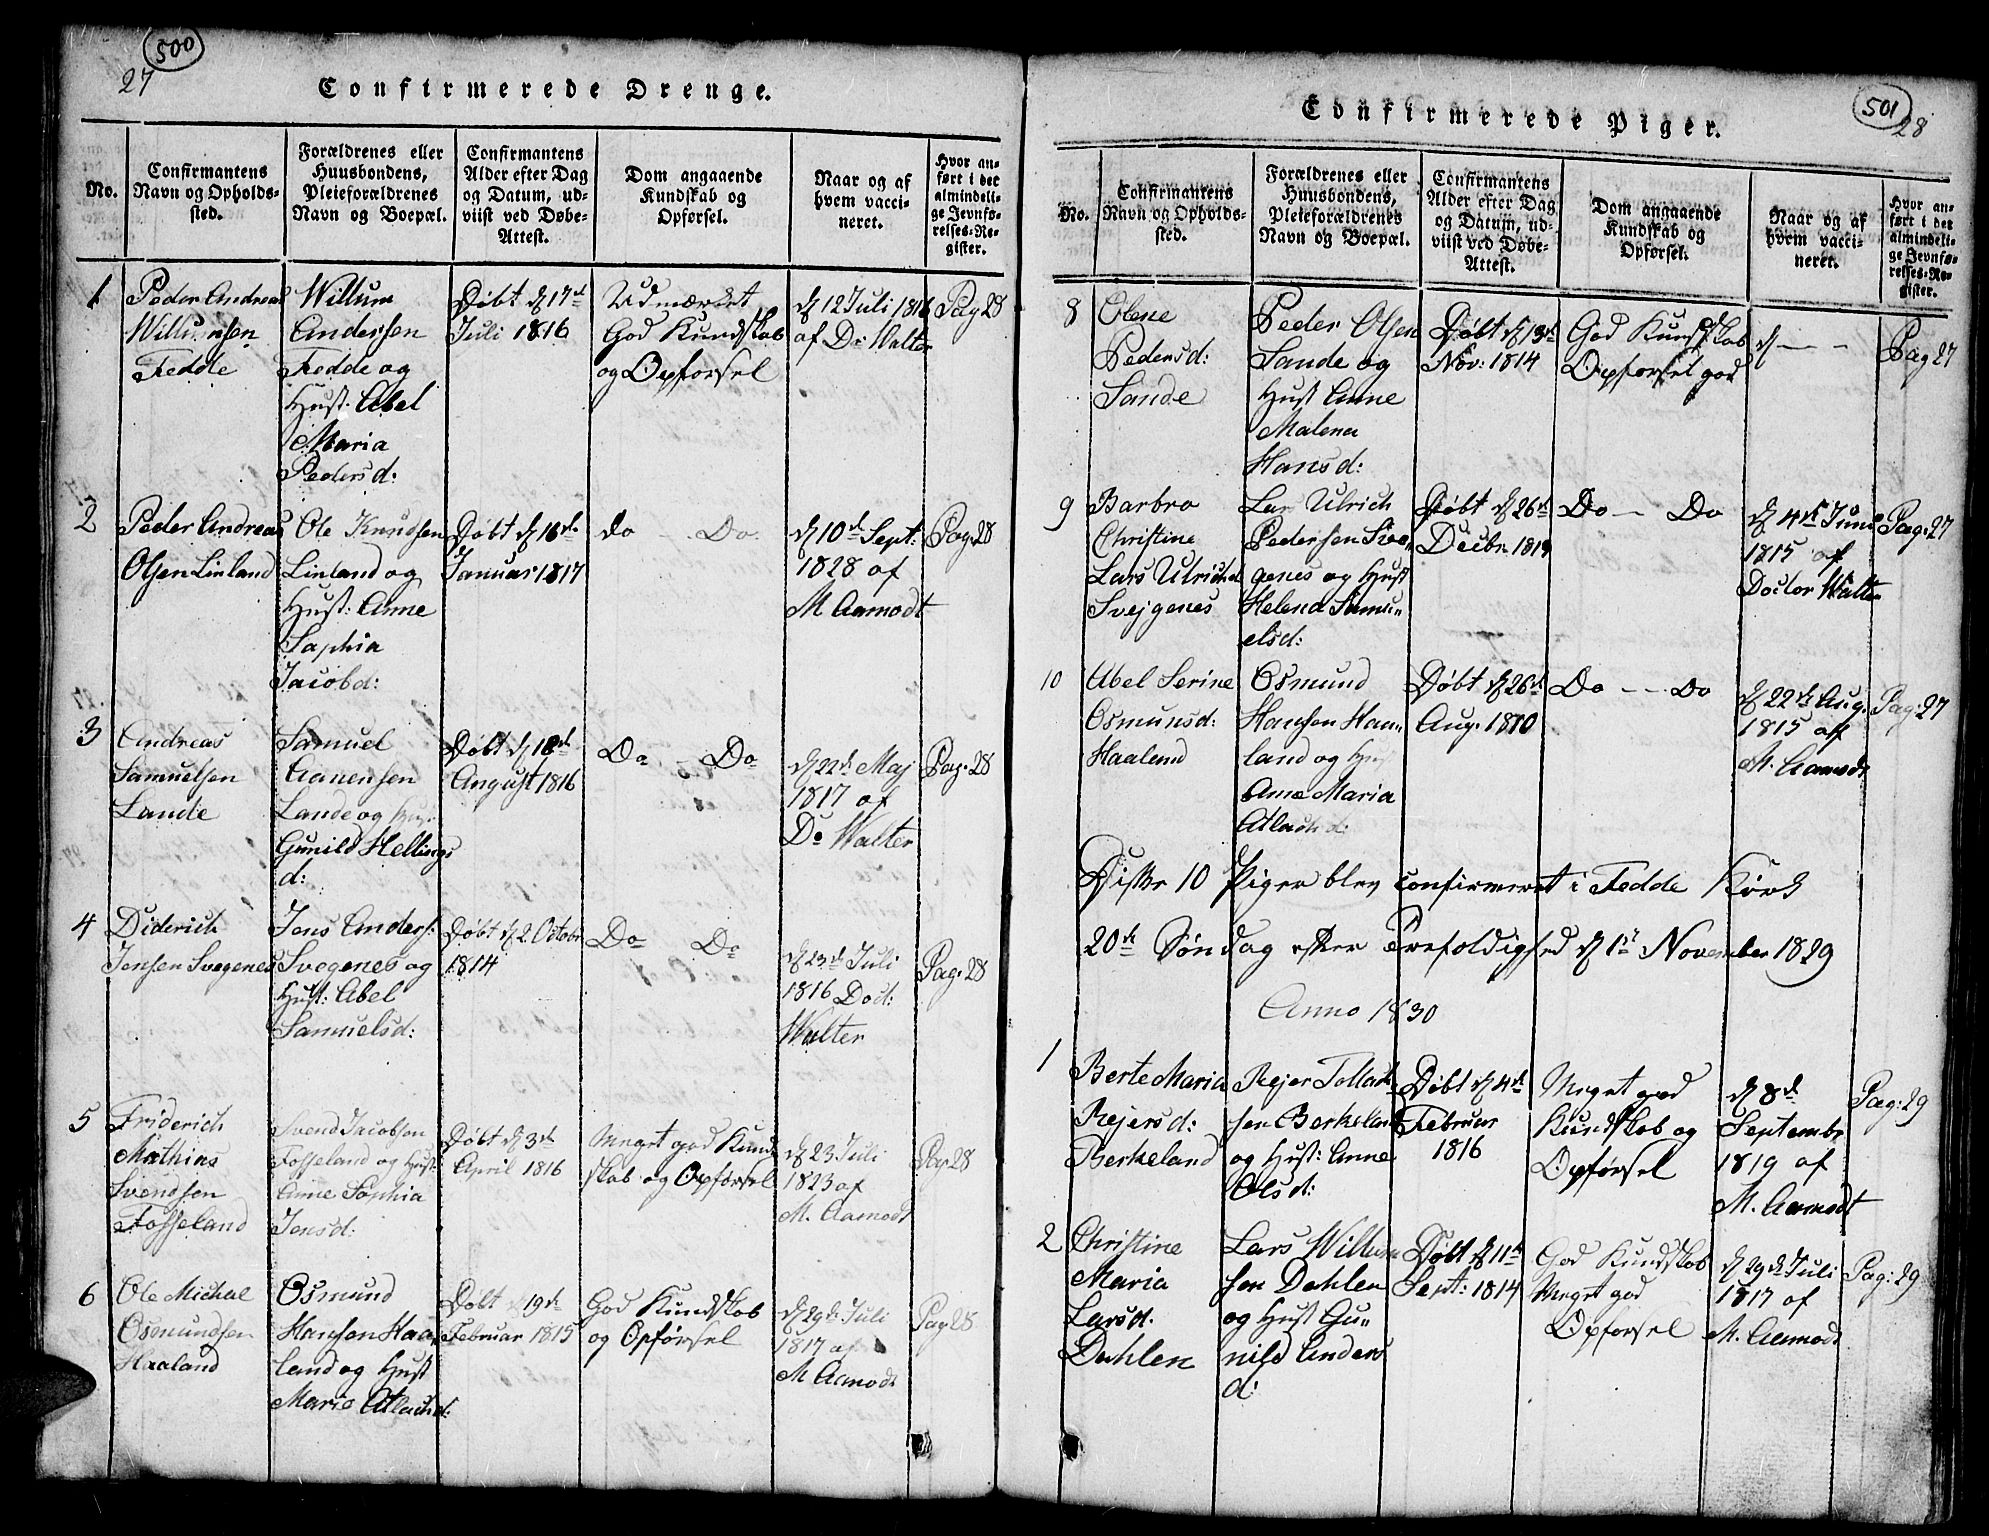 500
27
Confirmerede Drenge.
No.
Confirmantens
Navn og Opholds-
sted.
Forældrenes eller
Huusbondens,
Pleieforældrenes
Navn og Boepæl.
Confirmantens
Alder efter Dag
og Datum, ud-
viist ved Døbe-
Attest.
Dom angaaende
Kundskab og
Opførsel.
Naar og af
hvem vacci-
neret.
Hvor an-
ført i det
almindeli-
ge Jevnfø-
relses-Re-
gister.
1
Peder Andreas
Willumsen
Fedde
Willum
Andersen
Fedde og
Hust: Abel
Maria
Pedersd:
Døbt d 17d
Juli 1816
Udmærket
God Kundskab
og Opførsel
d 12 Juli 1816
af Dr Walter
Pag 28
2
Peder Andreas
Olsen Linland
Ole Knudsen
Linland og
Hust: Anne
Saphia
Jacobd:
Døbt d 16de
Januar 1817
do - Do
d 10d Sept:
1828 af
M Aamodt
Pag 28
3
Andreas
Samuelsen
Lande
Samuel
Aanensen
Lande og Hust
Gunild Hellings
d:
Døbt d 18d
August 1816
Do - Do
d 22d Maj
1817 af
Do Walter
Pag: 28
4
Diderich
Jensen Svegenes
Jens Anders:
Svegenes og
Hust: Abel
Samuelsd:
Døbt d 2 Octobr
1814
Do Do
d 23d Juli
1816 Doct:
Walter
Pag: 28
5
Friderich
Mathias
Svendsen
Fosseland
Svend Jacobsen
Fosseland og Hust:
Anne Sophia
Jensd:
Døbt d 3d
April 1816
Meget god Kund
skab og Opførsel
d 23 Juli
1823 af
M. Aamodt
Pag 28
6
Ole Michal
Osmundsen
Haaland
Osmund
Hansen Haa-
land og Hust
Maria Atlachd:
Døbt 19d
Februar 1815
God Kundskab
og Opførsel
d 29d Juli
1817 af
M Aamodt
Pag 28
501
28
Confirmerede Piger.
No.
Confirmantens
Navn og Opholds-
sted.
Forældrenes eller
Huusbondens,
Pleieforældrenes
Navn og Boepæl.
Confirmantens
Alder efter Dag
og Datum, ud-
viist ved Døbe-
Attest.
Dom angaaende
Kundskab og
Opførsel.
Naar og af
hvem vacci-
neret.
Hvor an-
ført i det
almindeli-
ge Jevnfø-
relses-Re-
gister.
8
Olene
Pedersd:
Sande
Peder Olsen
Sande og
Hust Anne
Malena
Hansd:
Døbt d 13d
Nov: 1814
God Kundskab
Opførsel god
d - -
Pag 27
9
Barbro
Christine
Lars Ulrichsd
Svejgenes
Lar Ulrich
Pedersen Sve-
genes og Hust
Helena Samu-
elsd:
Døbt d 26d
Decbr.
Do - Do
d 4d Juni
1815 af
Doctor Walter
Pag: 27
10
Abel Serine
Osmunsd:
Haaland
Osmund
Hansen Haa-
land og Hust
Anne Maria
Atlachd:
Døbt d 26d
Aug.
Do - - Do
d 22d Aug.
1815 af
M. Aamodt
Pag: 27
Disse 10 Piger blev confirmeret i Fedde Kirk
20d Søndag efter Trefoldighed d 1st November 1829
Anno 1830
1
Berte Maria
Rejersd:
Berkeland
Rejer Tollach
sen Berkeland
og Hust: Anne
Olsd:
Døbt d 4d
Februar
1816
Meget god
Kundskab og
Opførsel
d 8d
Septembr
1819 af
M. Aamodt
Pag: 29
2
Christine
Maria
Larsd.
Dahlen
Lars Willum
sen Dahlen
og Hust Gu-
nild Anders
d:
Døbt d 11d
Sept: 1814
God Kundskab
Meget god
Opførsel
d 29d Juli
1817 af
M. Aamodt
Pag: 29